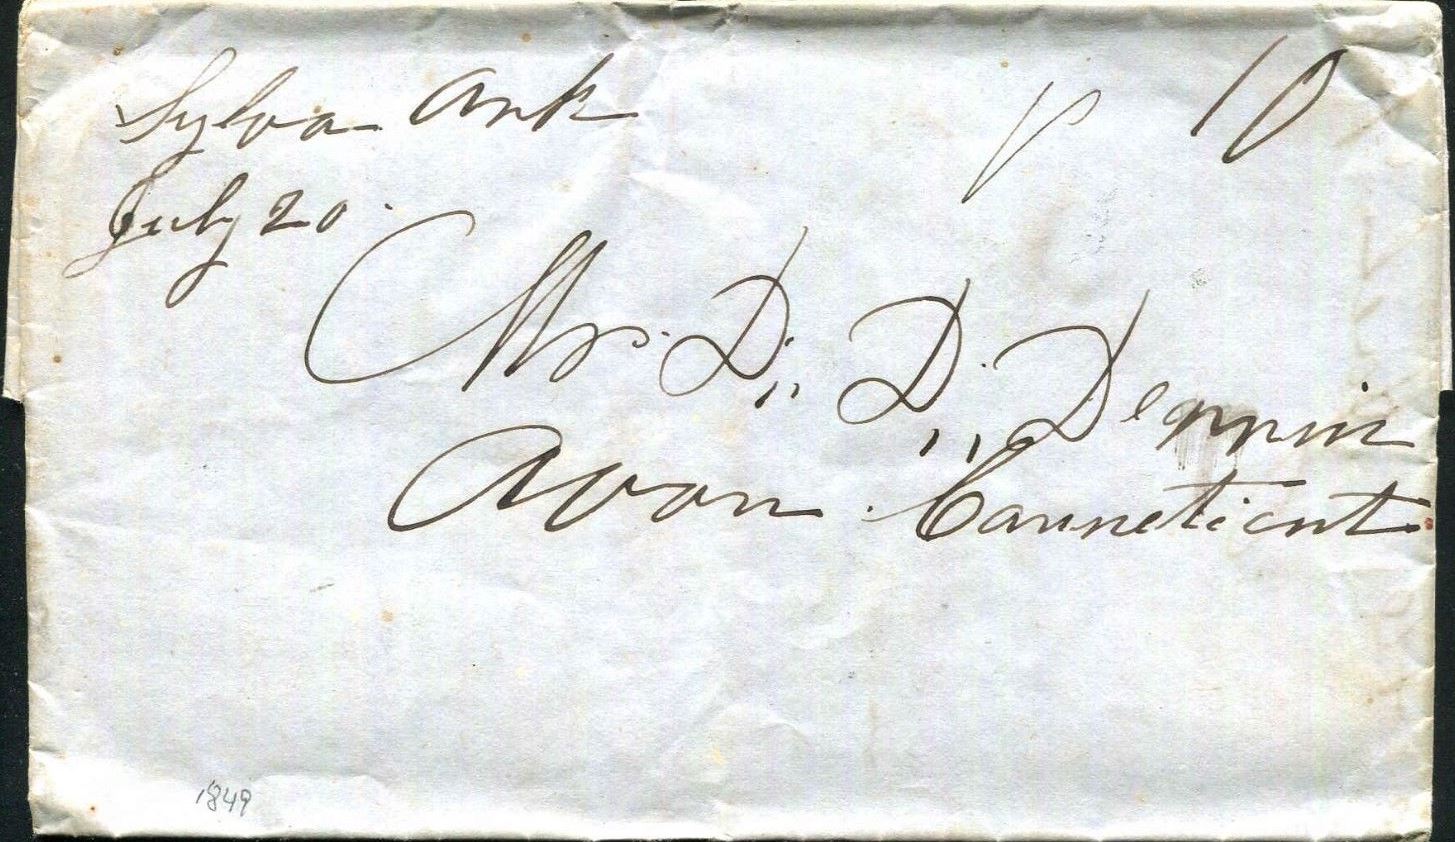 Sylva Ark
10
July 20
Mr. D,, D,, D
Avon Conneticut
1849